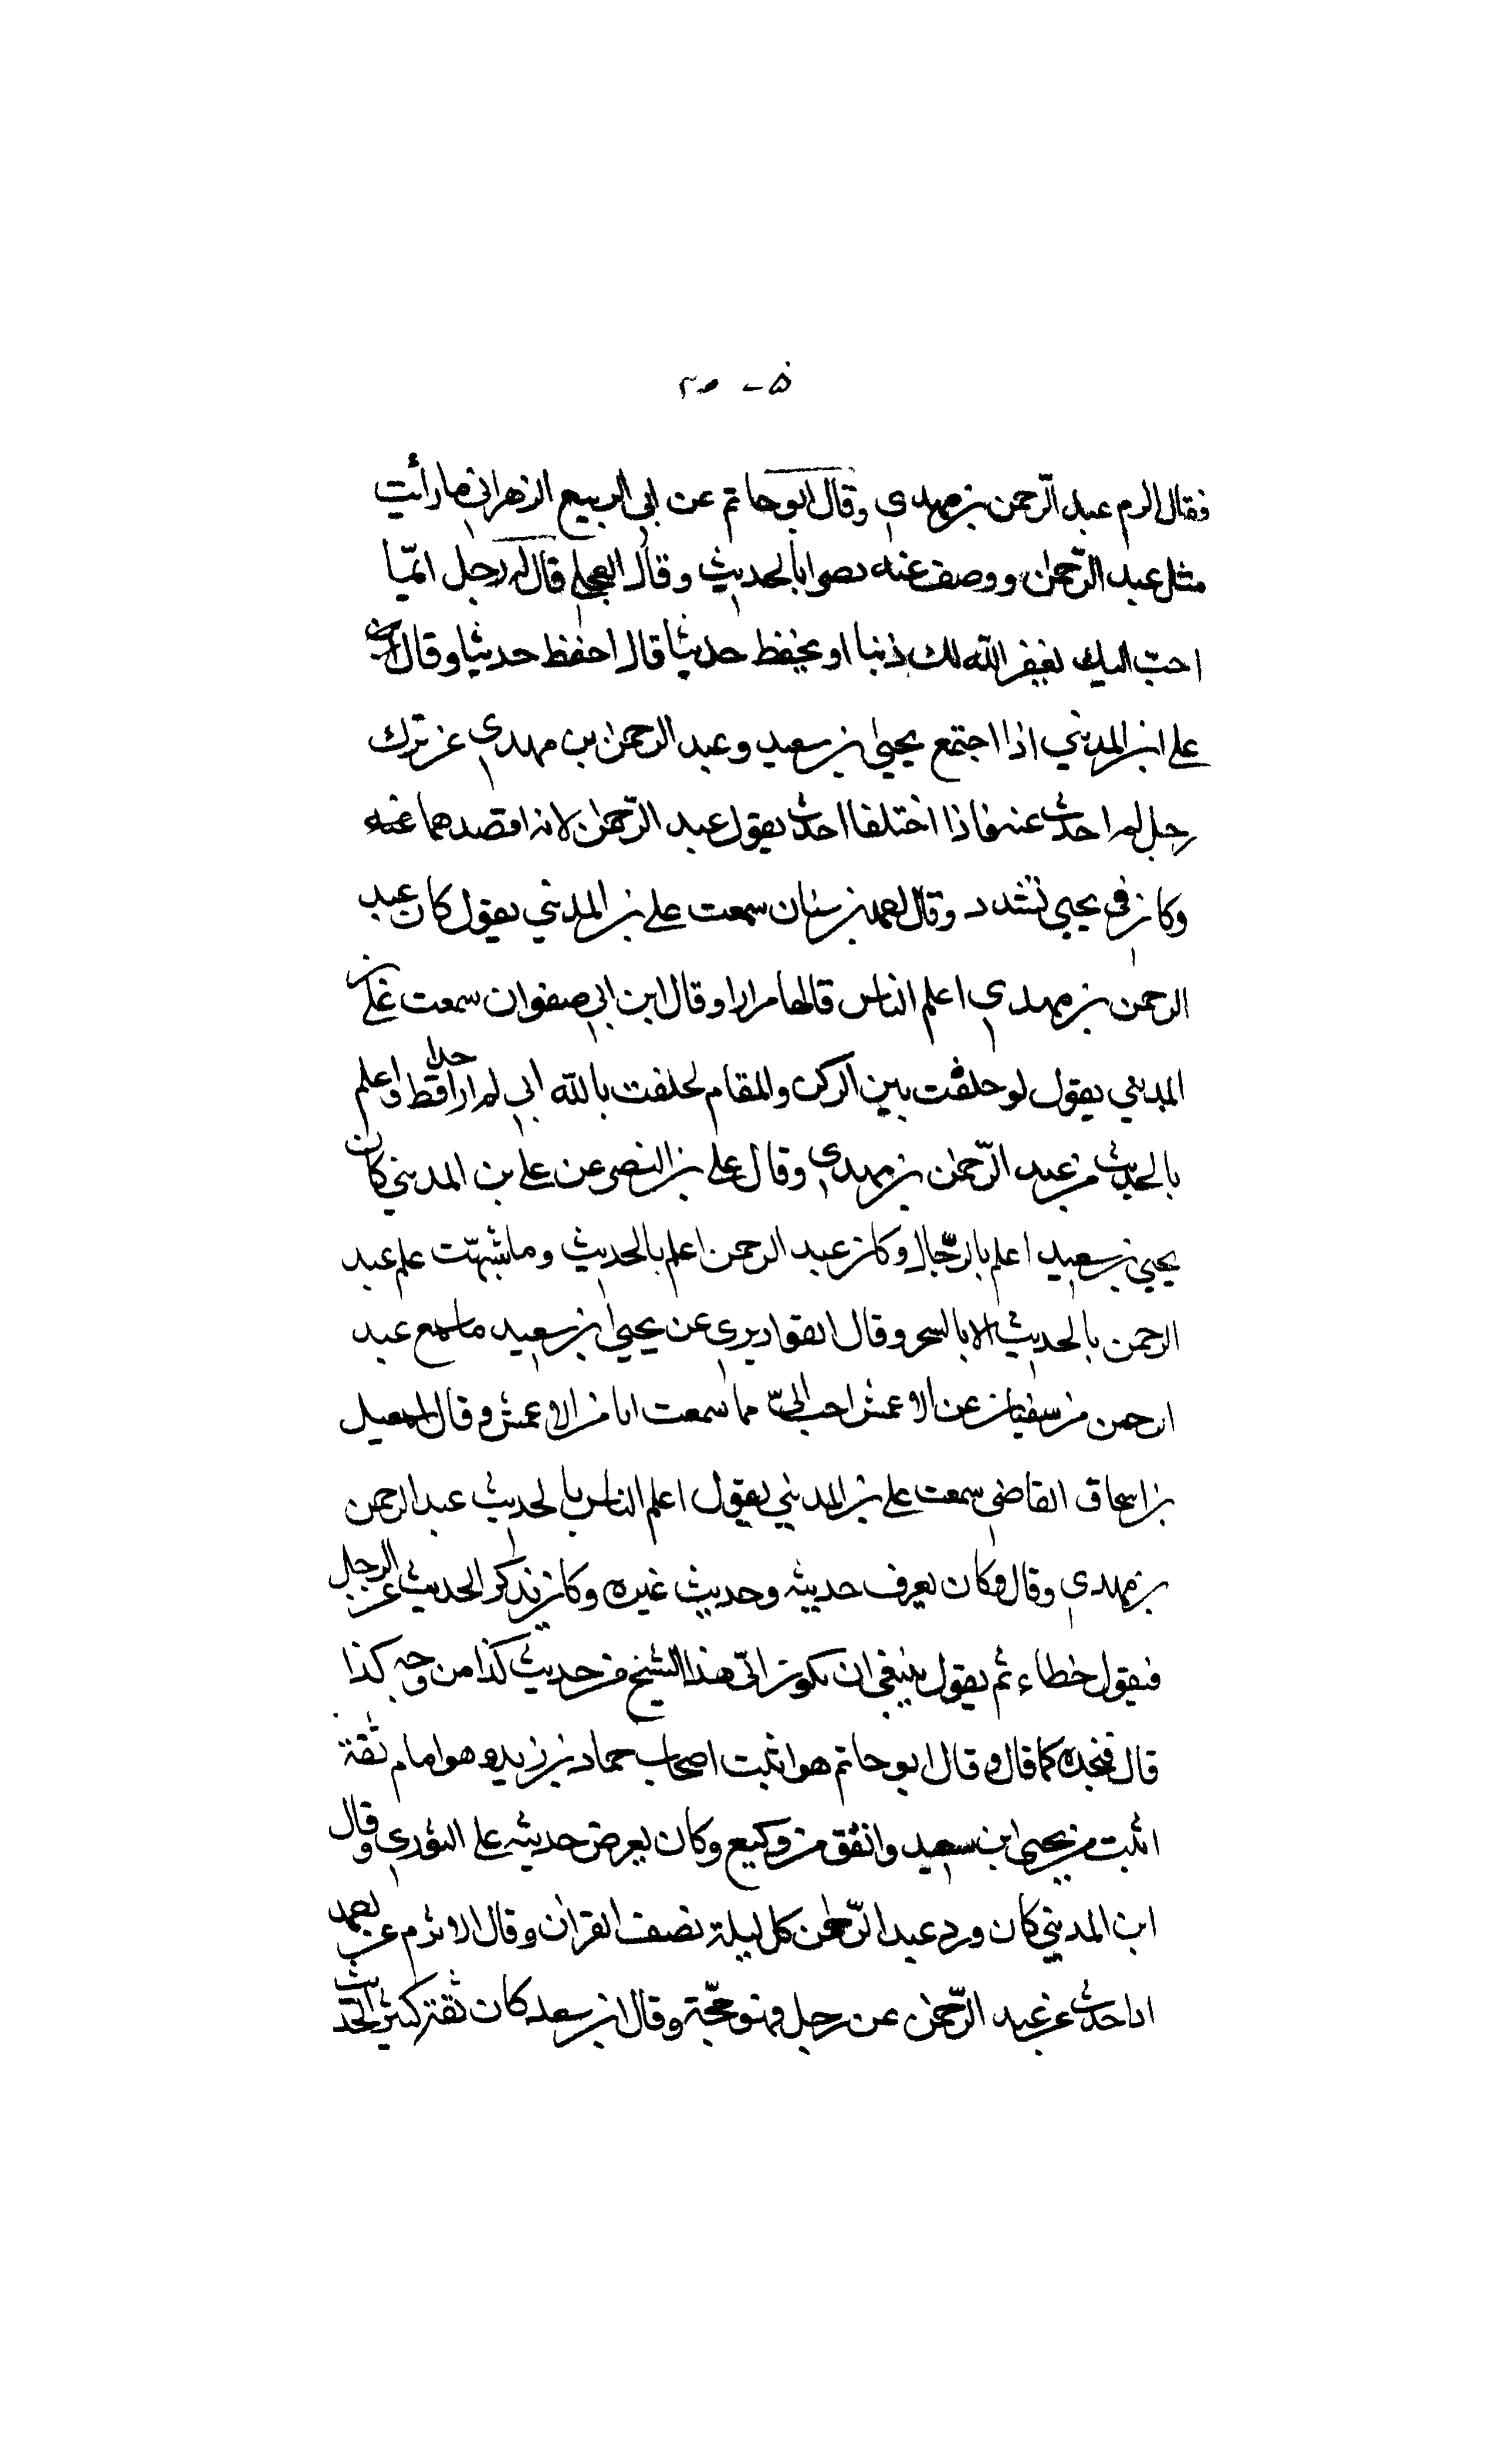 فقال الزم عبد الرّحمن بن مهدي وقال ابو حاتم عن ابي الربيع الزهراني ما رأيت
مثل عبد الرّحمٰن ووصف عنه بصرا بالحديث وقال العجلي قال له رجل ايّما
احبّ اليك يغفر اللّٰه لك ذنبا او تحفظ حديثا قال احفظ حديثا وقال
علي ابن المديني اذا اجتمع يحيىٰ بن سعيد وعبد الرحمٰن بن مهدي عن ترك
رجل لم احدث عنه فاذا اختلفا احدث بقول عبد الرّحمٰن لانه اقصدهما
وكان في يحيي تشدد وقال احمد بن سنان سمعت علي بن المديني يقول كان عبد
الرحمن بن مهدي اعلم الناس قالها مرارا وقال ابن ابي صفوان سمعت علي بن
المديني يقول لو حلفت بين الركن والمقام لحلفت باللّٰه اني لم ار احدا قط اعلم
بالحديث من عبد الرّحمٰن بن مهدي وقال علي بن النصر عن علي بن المديني كان
يحيي بن سعيد اعلم بالرّجال وكان عبد الرحمن اعلم بالحديث وما شبهت علم عبد
الرحمن بالحديث الا بالسحر وقال القواريري عن يحيىٰ بن سعيد ما سمع عبد
الرحمن من سفيان عن الاعمش احب اليّ مما سمعت انا من الاعمش وقال اسمعيل
بن اسحاق القاضي سمعت علي بن المديني يقول اعلم الناس بالحديث عبد الرحمن
بن مهدي وقال وكان يعرف حديثه وحديث غيره وكان يذكر الحديث عن الرجل
فيقول خطاء ثم يقول ينبغي ان يكون اتى هذا الشيخ من حديث كذا من وجه كذا
قال فنجده كما قال وقال ابو حاتم هو اثبت اصحاب حماد بن زيد وهو امام ثقة
اثبت من يحيىٰ ابن سعيد واتقن من وكيع وكان يعرض حديثه علي الثوري وقال
ابن المديني كان ورد عبد الرّحمٰن كل ليلة نصف القرآن وقال الاثرم عن احمد
اذا حدث عن عبد الرّحمٰن عن رجل فهو حجّة وقال ابن سعد كان ثقة كثير الحديث